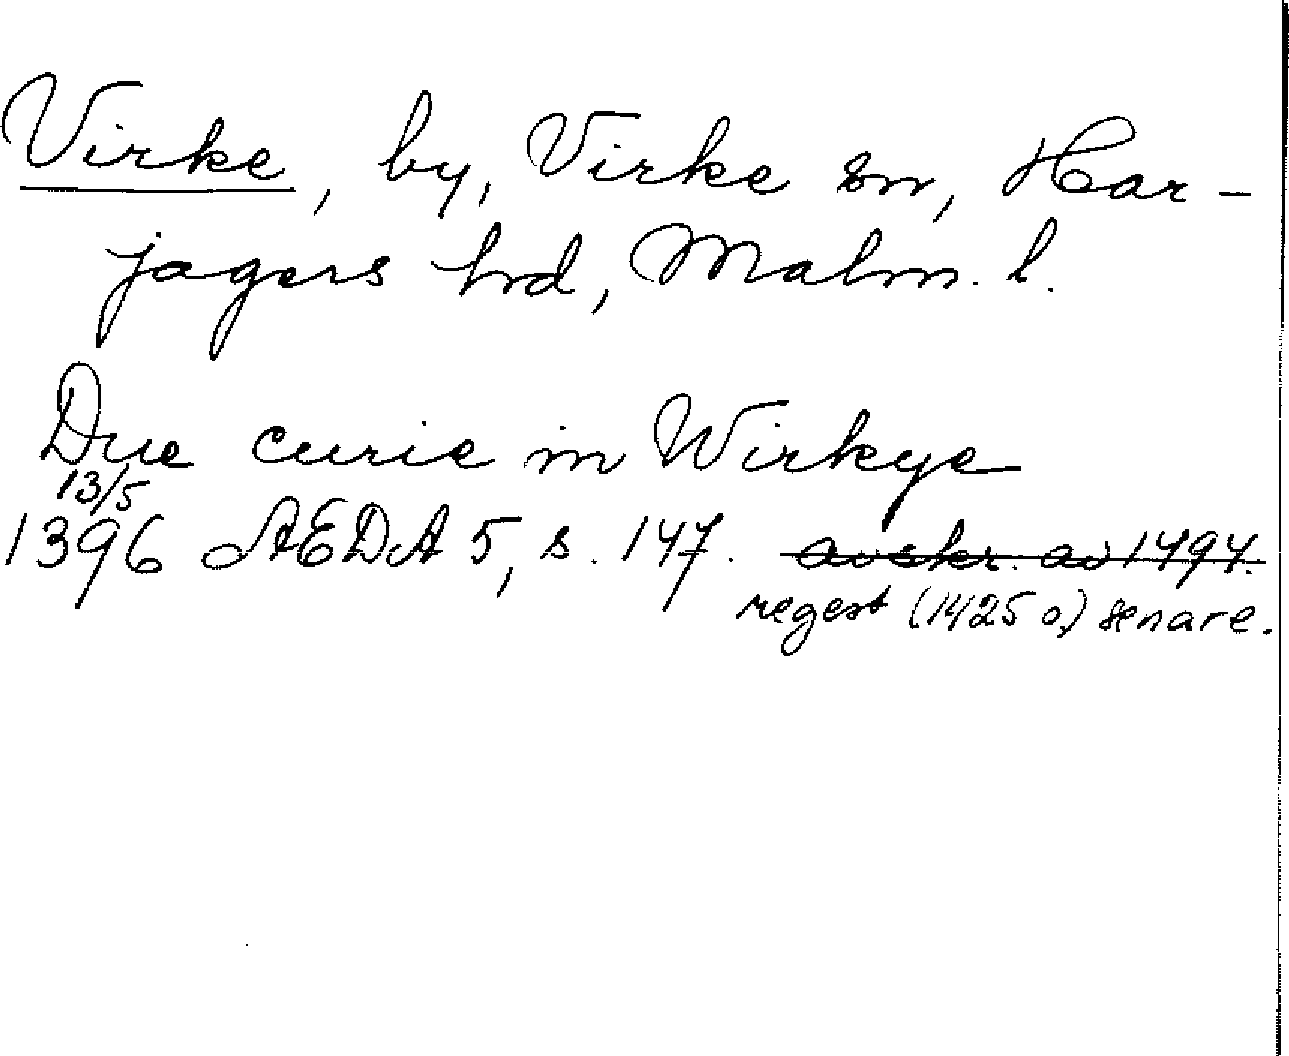 Virke, by, Virke sn, Har-
jagers hrd, Malm. l.
Due curie in Wirkye
13/5
1396 AEDA 5, s. 147. avskr. av 1494.
regest (1425 o) senare.